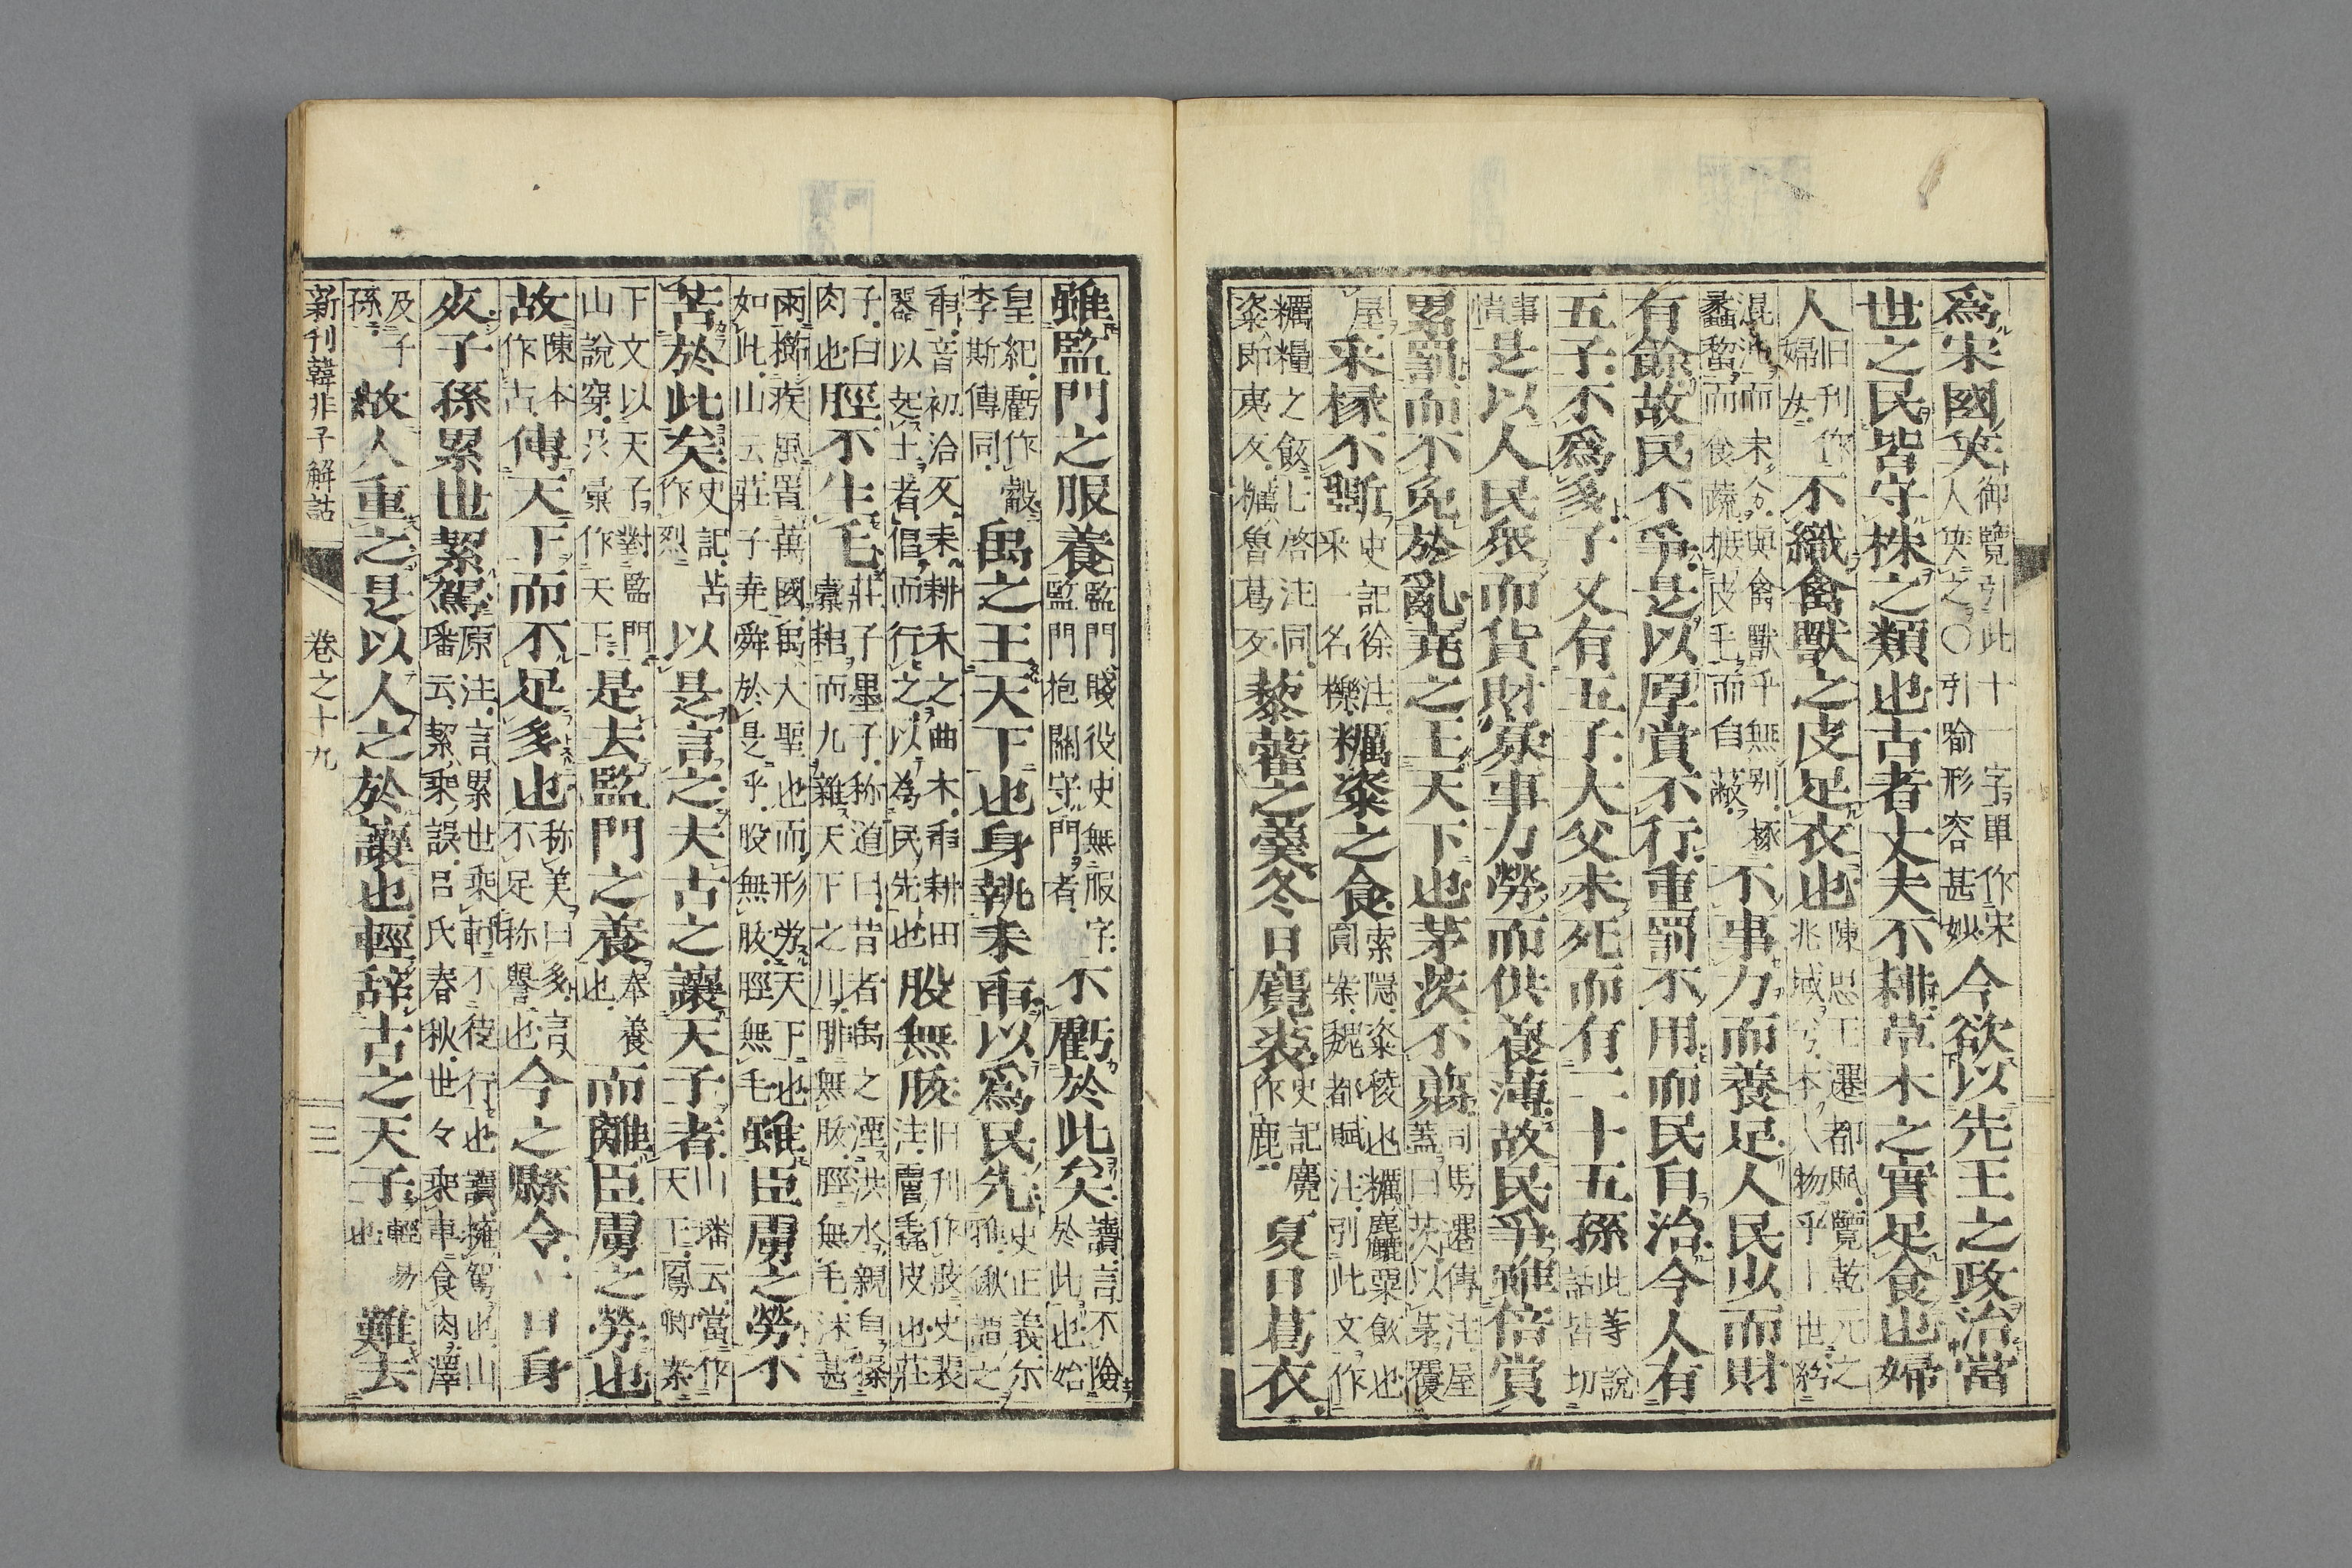 爲宋國笑御覽引此十一字單作宋人笑之〇引喻形容甚妙今欲以先王之政治當
世之民皆守株之類也古者丈夫不耕草木之實足食也婦
人旧刊作婦女不織禽獸之皮足衣也陳思王遷都賦覽乾元之兆域兮本人物乎上世紛
混沌而未分與禽獸乎無别椓蠡蜊而食蔬摭皮毛而自蔽不事力而養足人民少而財
有餘故民不爭是以厚賞不行重罰不用而民自治今人有
五子不爲多子又有五子大父未死而有二十五孫此等說話皆切
事情是以人民衆而貨財寡事力勞而供養薄故民爭雖倍賞
累罰而不免於亂堯之王天下也茅茨不翦司馬遷傳注屋蓋曰茨以茅覆
屋采椽不斲史記徐注采一名櫟糲粢之食索隱粢稜也糲麤粟飯也圓案魏都賦注引此文作
糲糧之飯七啓注同粢即夷久糲魯葛反藜藿之羹冬日麑裘史記麑作鹿夏日葛衣
雖監門之服養監門賤役史無服字監門抱關守門者不虧於此矣讀言不險於此也始
皇紀虧作觳李斯傳同禹之王天下也身執耒臿以爲民先史正義尔雅鍬謂之
臿音初洽反耒耕禾之曲木臿耕田器以起土者倡而行之以為民先也股無胈旧刊作肢史裴注膚毳皮也莊
子曰肉也脛不生毛莊子墨子称道曰昔者禹之湮洪水親自操橐耜而九雜天下之川腓無胈脛無毛沐甚
雨擳疾風置萬國禹大聖也而形勞天下也如此山云莊子堯舜於是乎股無胈脛無毛雖臣虜之勞不
苦於此矣史記苦作烈以是言之夫古之讓天子者山璠云當作天下鳳卿案
下文以天子對監門山說穿只彙作天下是去監門之養奉養也而離臣虜之勞也
故陳本作古傳天下而不足多也称美曰多言不足称譽也今之縣令一日身
死子孫累世絜駕原注言累世乘軒不徒行也讀擁駕也山璠云絜乘誤呂氏春秋世々乘車食肉澤
及子孫故人重之是以人之於讓也輕辞古之天子輕易也難去
新刊韓非子解詁 卷之十九 三